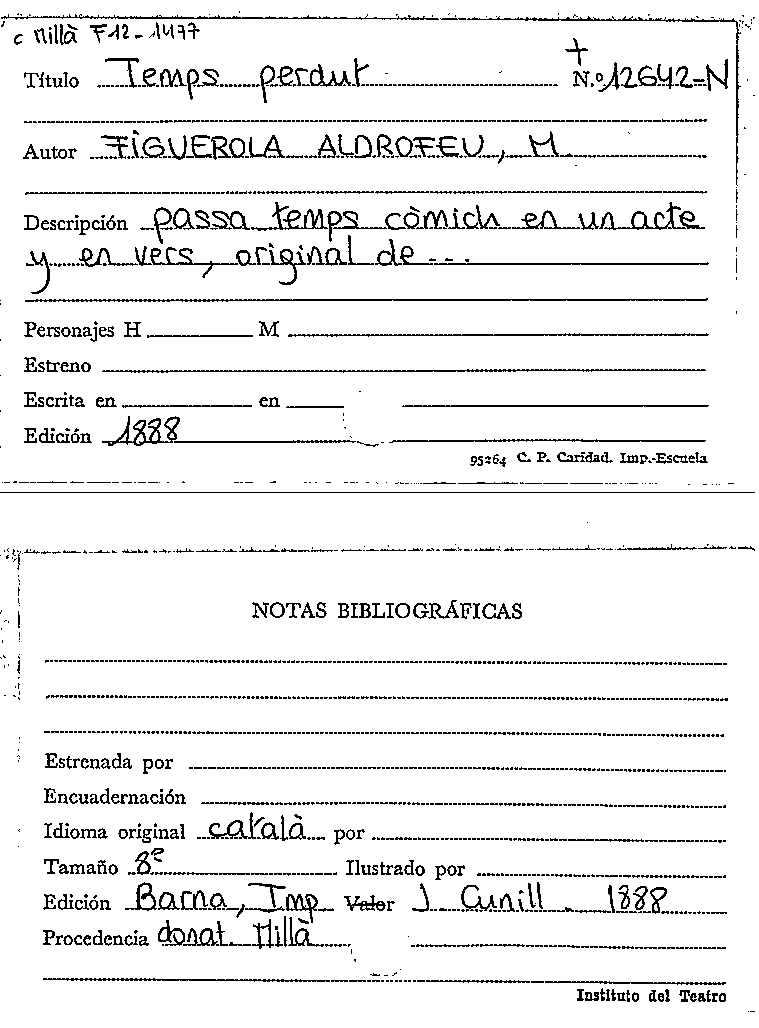 c Millà F12-1477
Título Temps perdut + N.º 12642-N
Autor FIGUEROLA ALDROFEU, M.
Descripción passa temps còmich en un acte
y en vers, original de ---
Personajes H M
Estreno
Escrita en en
Edición 1888
95264 C. P. Caridad. Imp.-Escuela
NOTAS BIBLIOGRÁFICAS
Estrenada por
Encuadernación
Idioma original català por
Tamaño 8º Ilustrado por
Edición Barna, Imp Valor J. Cunill. 1888
Procedencia donat. Millà
Instituto del Teatro